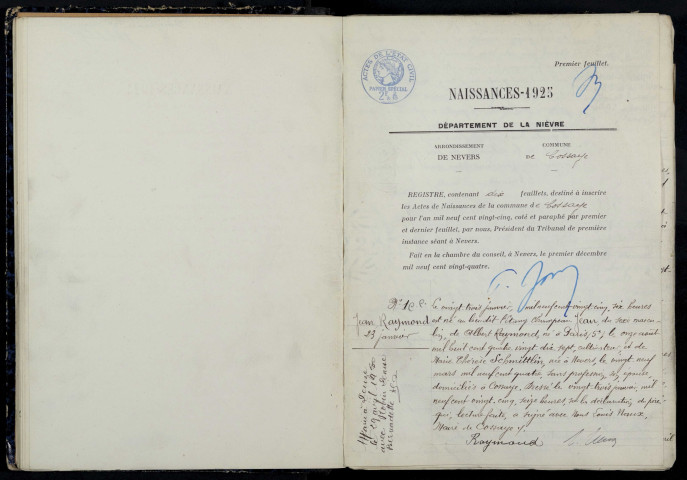 Premier feuillet.
ACTES DE L'ETAT CIVIL
PAPIER SPECIAL
NAISSANCES-1925
DÉPARTEMENT DE LA NIÈVRE
ARRONDISSEMENT
DE NEVERS
COMMUNE
de Cossaye
REGISTRE, contenant dix feuillets, destiné à inscrire
les Actes de Naissances de la commune de Cossaye
pour l'an mil neuf cent vingt-cinq, coté et paraphé par premier
et dernier feuillet, par nous, Président du Tribunal de première
instance séant à Nevers.
Fait en la chambre du conseil, à Nevers, le premier décembre
mil neuf cent vingt-quatre.
N° 1
Raymond
Jean
23 janvier
Marié à
le 29 avril 19
avec
Bernadette
Le vingt trois janvier, mil neuf cent vingt cinq, six heures
est né au lieudit Jean du sexe mascu-
lin, de Albert Raymond, né à Paris, 5e, le onze août
mil huit cent quatre vingt dix sept, cultivateur, et de
Marie Schmittlin, née à Nevers, le vingt neuf
mars mil neuf cent quatre, sans profession, son épouse,
domiciliés à Cossaye. Dressé le vingt trois janvier, mil
neuf cent vingt cinq, seize heures, sur la déclaration du père
qui, lecture faite, a signé avec Nous Louis
Maire de Cossaye
Raymond